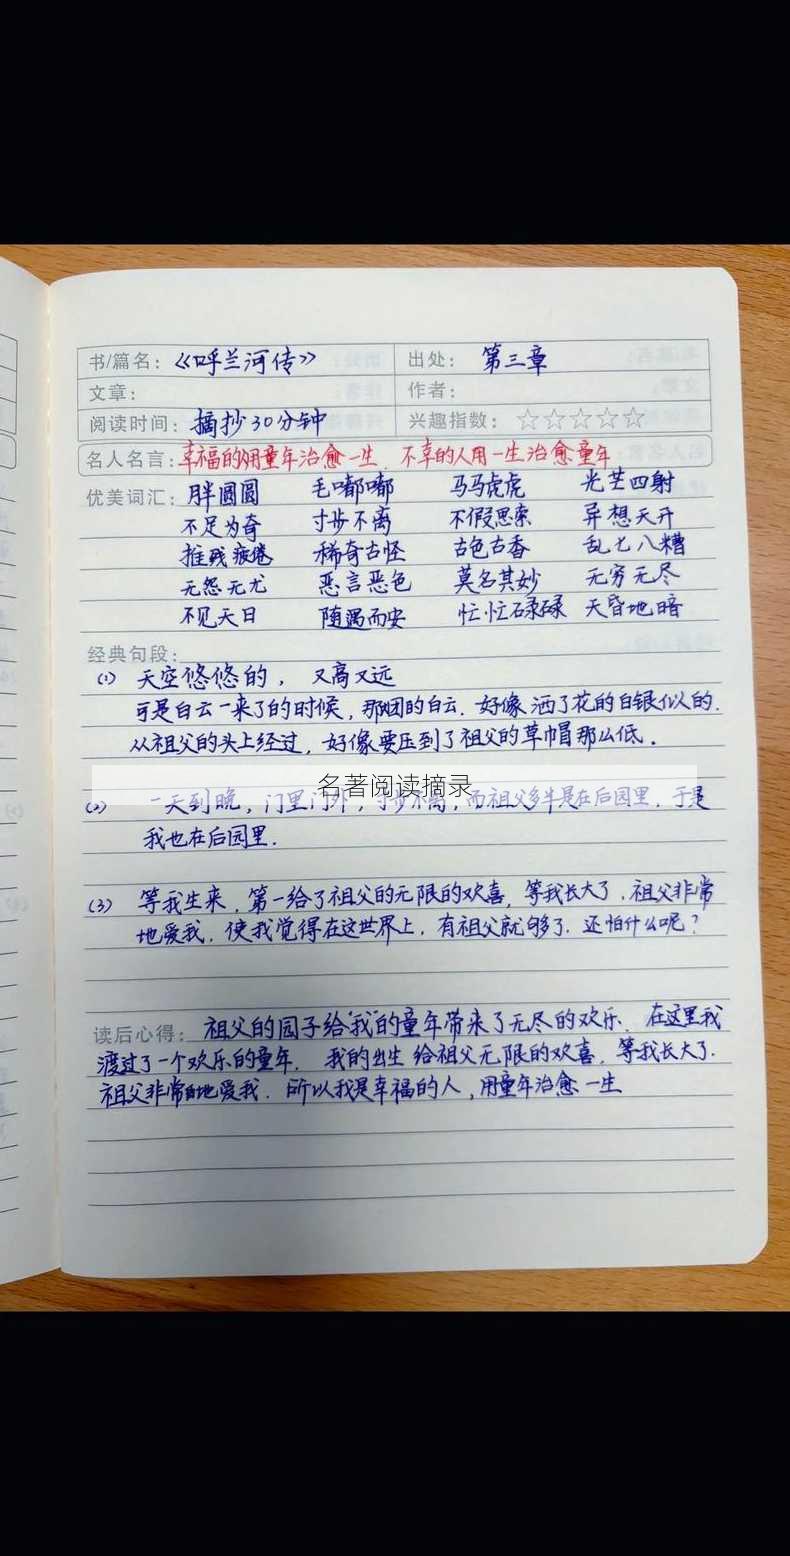 书/篇名：《呼兰河传》 出处：第三章
文章： 作者：
阅读时间：摘抄30分钟 兴趣指数：☆☆☆☆☆
名人名言：幸福的人用童年治愈一生．不幸的人用一生治愈童年
优美词汇：胖圆圆 毛嘟嘟 马马虎虎 光芒四射
不足为奇 寸步不离 不假思索 异想天开
推残疲倦 稀奇古怪 古色古香 乱七八糟
无怨无尤 恶言恶色 莫名其妙 无穷无尽
不见天日 随遇而安 忙忙碌碌 天昏地暗
经典句段：
(1) 天空悠悠的，又高又远
可是白云一来了的时候，那团的白云．好像洒了花的白银似的．
从祖父的头上经过，好像要压到了祖父的草帽那么低．
名著阅读摘录
(2) 一天到晚，门里门外，寸步不离，而祖父多半是在后园里．于是
我也在后园里．
(3) 等我生来．第一给了祖父的无限的欢喜．等我长大了．祖父非常
地爱我．使我觉得在这世界上．有祖父就够了．还怕什么呢？
读后心得：祖父的园子给“我”的童年带来了无尽的欢乐．在这里我
渡过了一个欢乐的童年．我的出生给祖父无限的欢喜．等我长大了．
祖父非常地爱我．所以我是幸福的人，用童年治愈一生